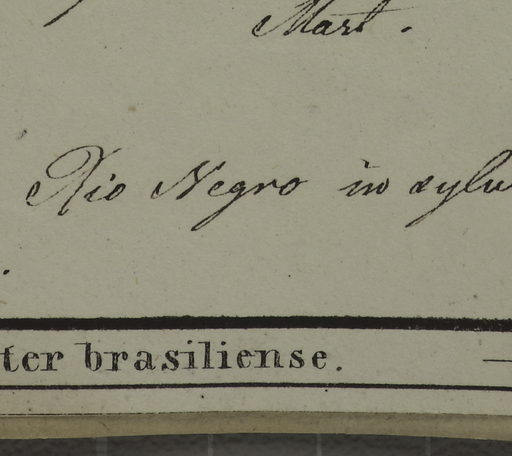 Mart.
Rio Negro in sylv
ter brasiliense.